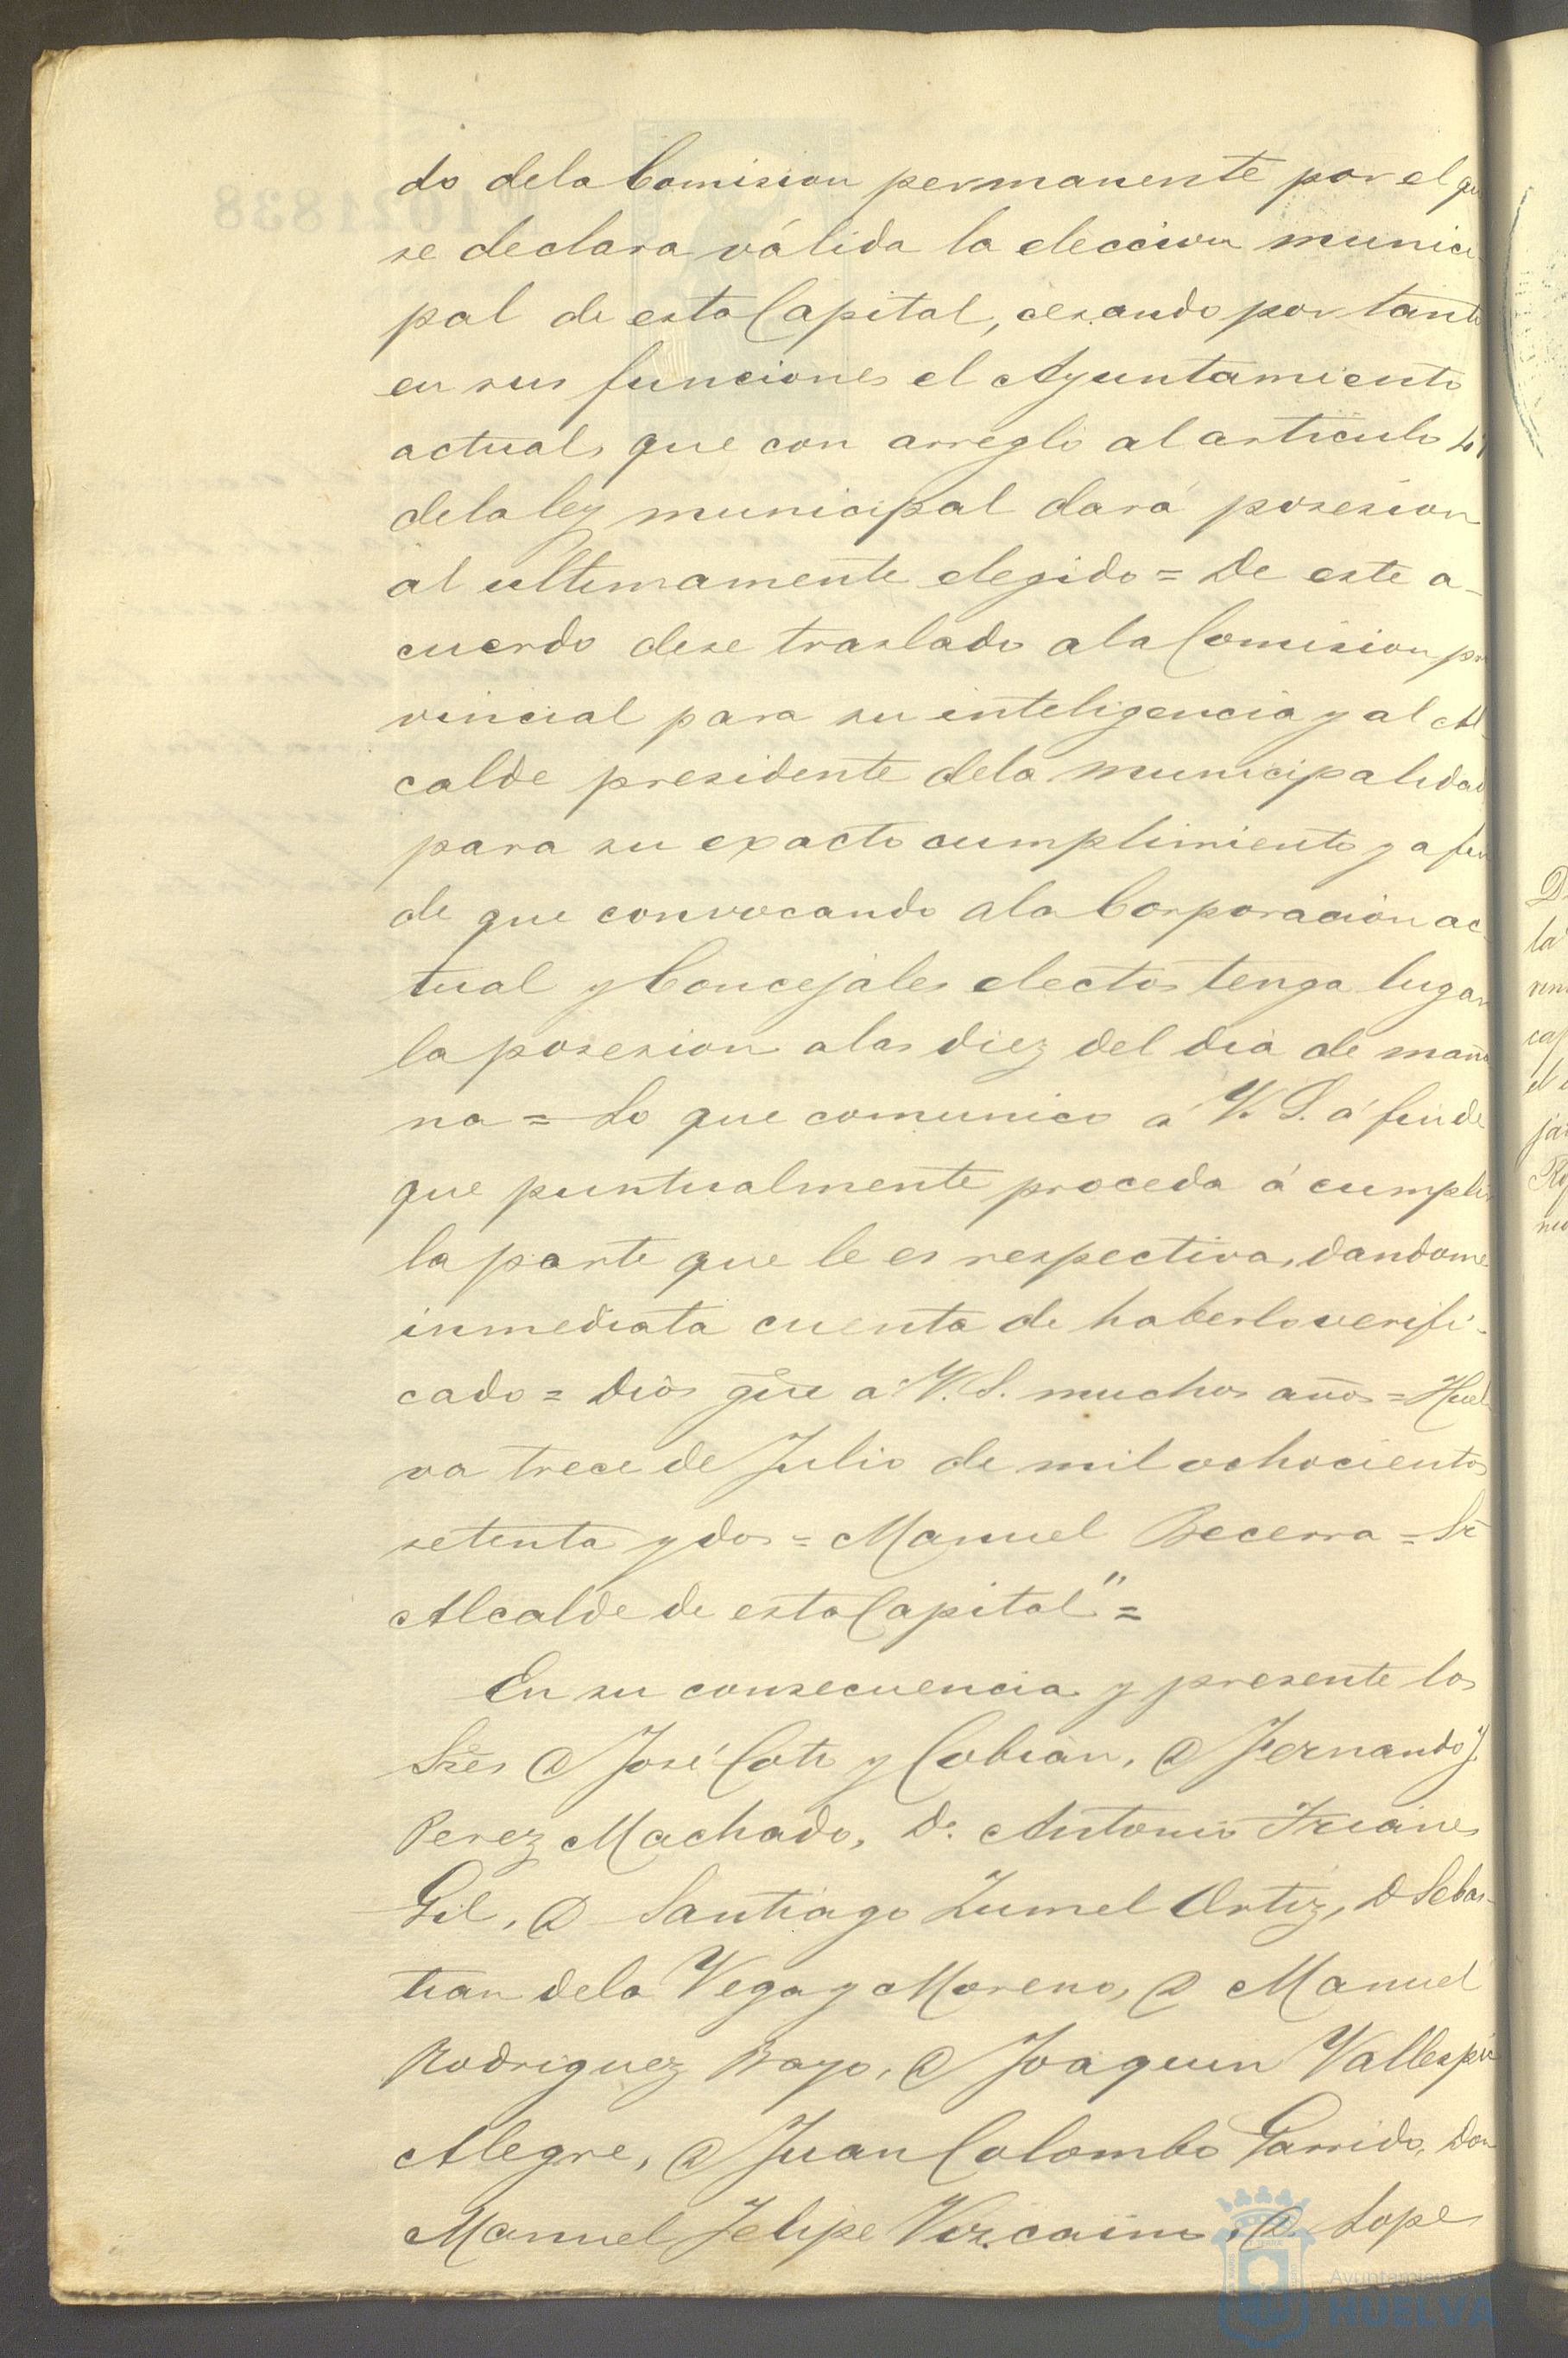 do dela Comision permanente por el que
se declara válida la eleccion munici
pal de esta Capital, cesando por tanto
en sus funciones el Ayuntamiento
actual, que con arreglo al articulo
dela ley municipal dará posesion
al ultimamente elegido = De este a-
cuerdo dese traslado ala Comision pro
vincial para su inteligencia y al Al-
calde presidente dela municipalidad
para su exacto cumplimiento y a fin
de que convocando ala Corporacion ac-
tual y Concejales electos tenga lugar
la posesion alas diez del dia de maña
na = Lo que comunico á V. S. á fin de
que puntualmente proceda á cumplir
la parte que le es respectiva, dandome
inmediata cuenta de haberlo verifi-
cado = Dios gue a V. S. muchos años = Huel
va trece de Julio de mil ochocientos
setenta y dos = Manuel Becerra = Sr
Alcalde de esta Capital" =
En su consecuencia y presente los
Sres D José Coto y Cobian, D Fernando J.
Perez Machado, Dn Antonio Trianes
Gil, D Santiago Zumel Ortiz, D Sebas-
tian dela Vega y Moreno, D Manuel
Rodriguez Bayo, D Joaquin Vallespin
Alegre, D Juan Colombo Garrido, Don
Manuel Felipe Vizcaino, D. Lope
Ayuntamiento
HUELVA
Nº 1021838